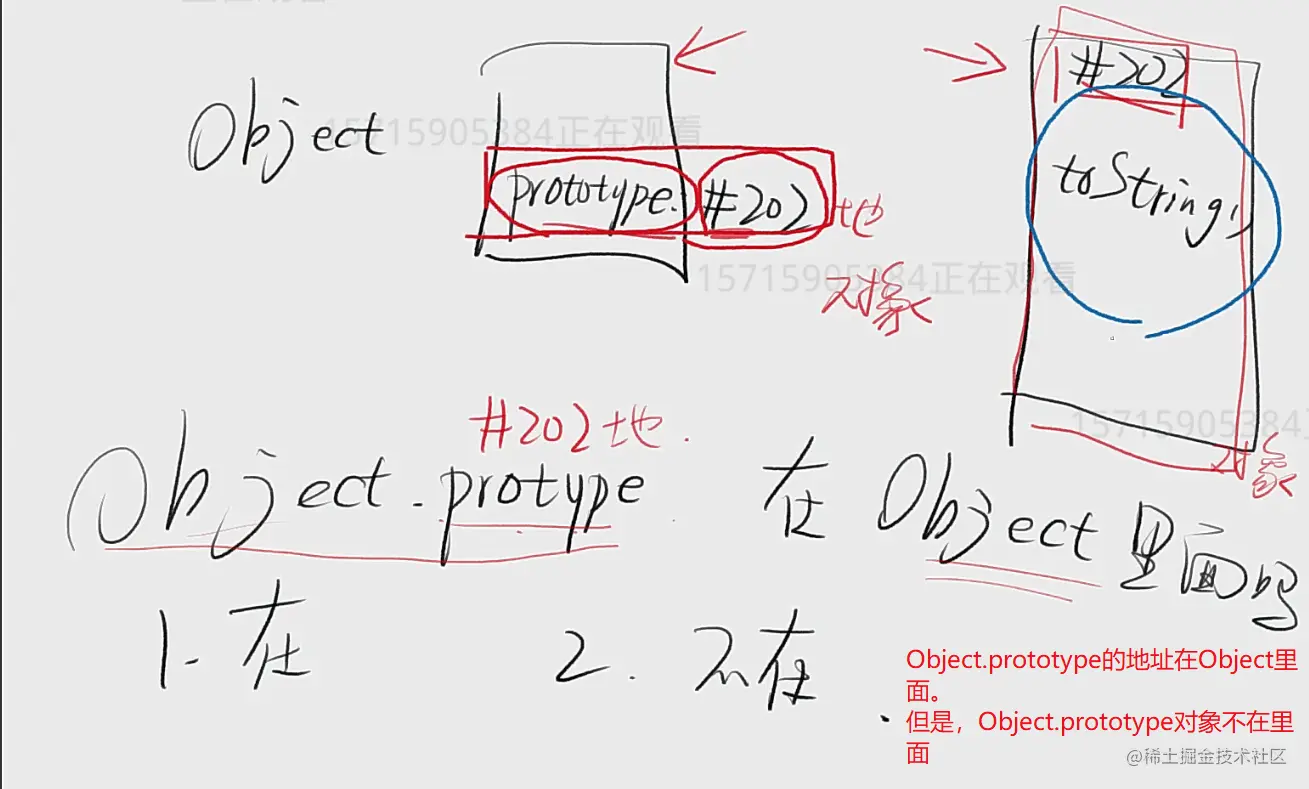 #202
Object
15715905384正在观看
toString()
prototype. #202 地
15715905384正在观看
对象
#202 地.
15715905384
对象
Object.protype 在 Object 里面吗
1. 在 2. 不在
Object.prototype的地址在Object里
面。
但是，Object.prototype对象不在里
面
@稀土掘金技术社区